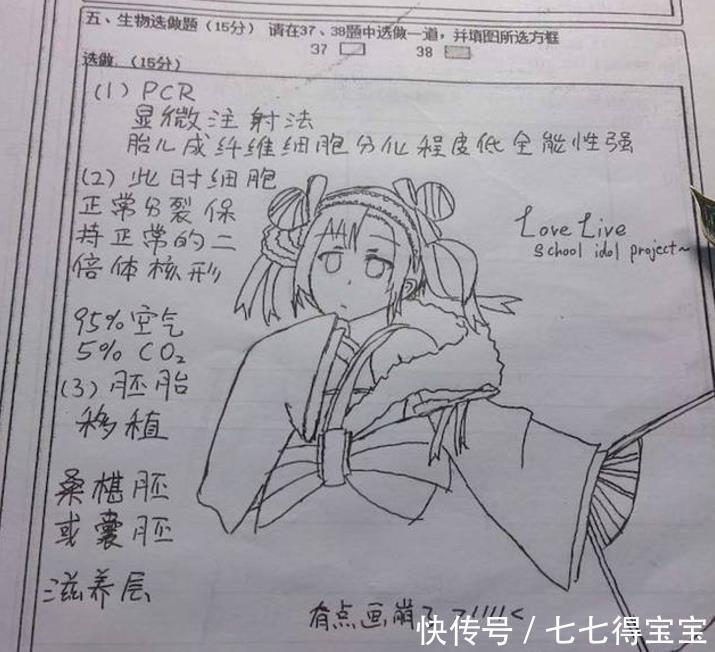 五、生物选做题（15分） 请在37、38题中选做一道，并填图所选方框
37 38
选做.（15分）
(1) PCR
显微注射法
胎儿成纤维细胞分化程度低全能性强
(2) 此时细胞
正常分裂保
持正常的二
倍体核形
95%空气
5% CO₂
(3) 胚胎
移植
桑椹胚
或囊胚
滋养层
Love Live
School idol project~
有点画崩了
快传号 / 七七得宝宝